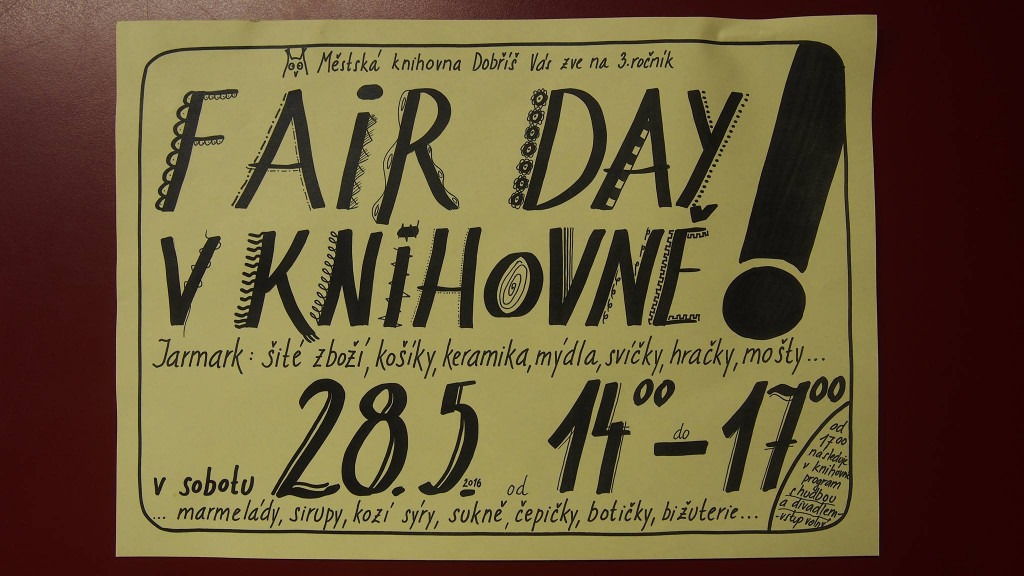 Městská knihovna Dobříš Vás zve na 3. ročník
FAiR DAY
V KNIHOVNĚ!
Jarmark: šité zboží, košíky, keramika, mýdla, svíčky, hračky, mošty...
v sobotu 28. 5. 2016 od 14 00 do – 17 00
... marmelády, sirupy, kozí sýry, sukně, čepičky, botičky, bižuterie...
od
17 00
následuje
v knihovně
program
s hudbou
a divadlem
- vstup volný -